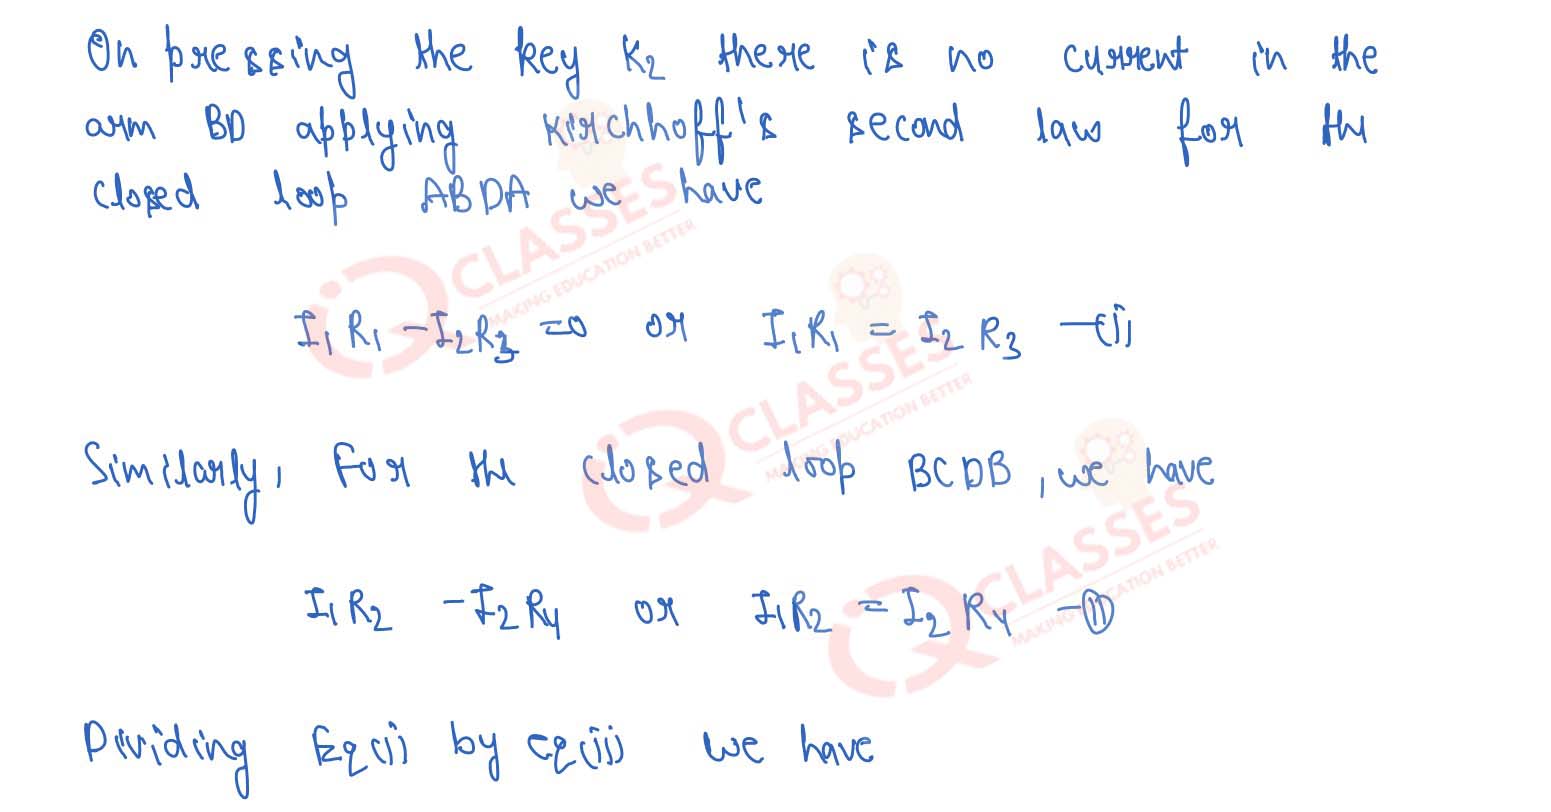 On pressing the key K₂ there is no current in the
arm BD applying Kirchhoff's second law for the
closed loop ABDA we have
I₁ R₁ - I₂R₃ = 0 or I₁R₁ = I₂ R₃ -(i)
Similarly, For the closed loop BCDB, we have
I₁R₂ - I₂ R₄ or I₁R₂ = I₂ R₄ -(ii)
Dividing Eq(i) by eq(ii) we have
CLASSES
MAKING EDUCATION BETTER
CLASSES
MAKING EDUCATION BETTER
CLASSES
MAKING EDUCATION BETTER